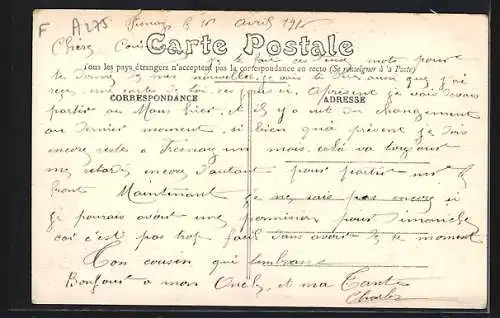 F A275
Fresnay le 16 avril 191
Chère Cousine je fais ces deux mots pour
Carte Postale
Tous les pays étrangers n'acceptent pas la correspondance au recto (Se renseigner à la Poste)
te donner de mes nouvelles je vais te dire aussi que j'ai
reçu une carte de toi, ces jours ci. Apresent je vais devais
CORRESPONDANCE ADRESSE
partir au Mans hier, et il y a eut du changement
au dernier moment, si bien qu'a présent je dois
encore resté a Fresnay un mois, cela va toujours
me retarder encore d'autant pour partir sur le
front Maintenant je ne sais pas encore si
je pourais avoir une permission pour dimanche
car c'est pas trop facil d'en avoir de ce moment
Ton cousin qui t'embrasse
Bonjour a mon Oncle, et ma Tante
Charles